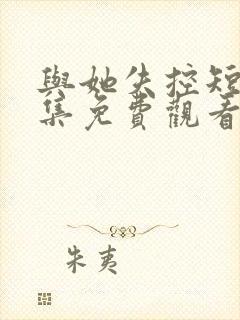 與她失控短
集免費觀看
朱夷